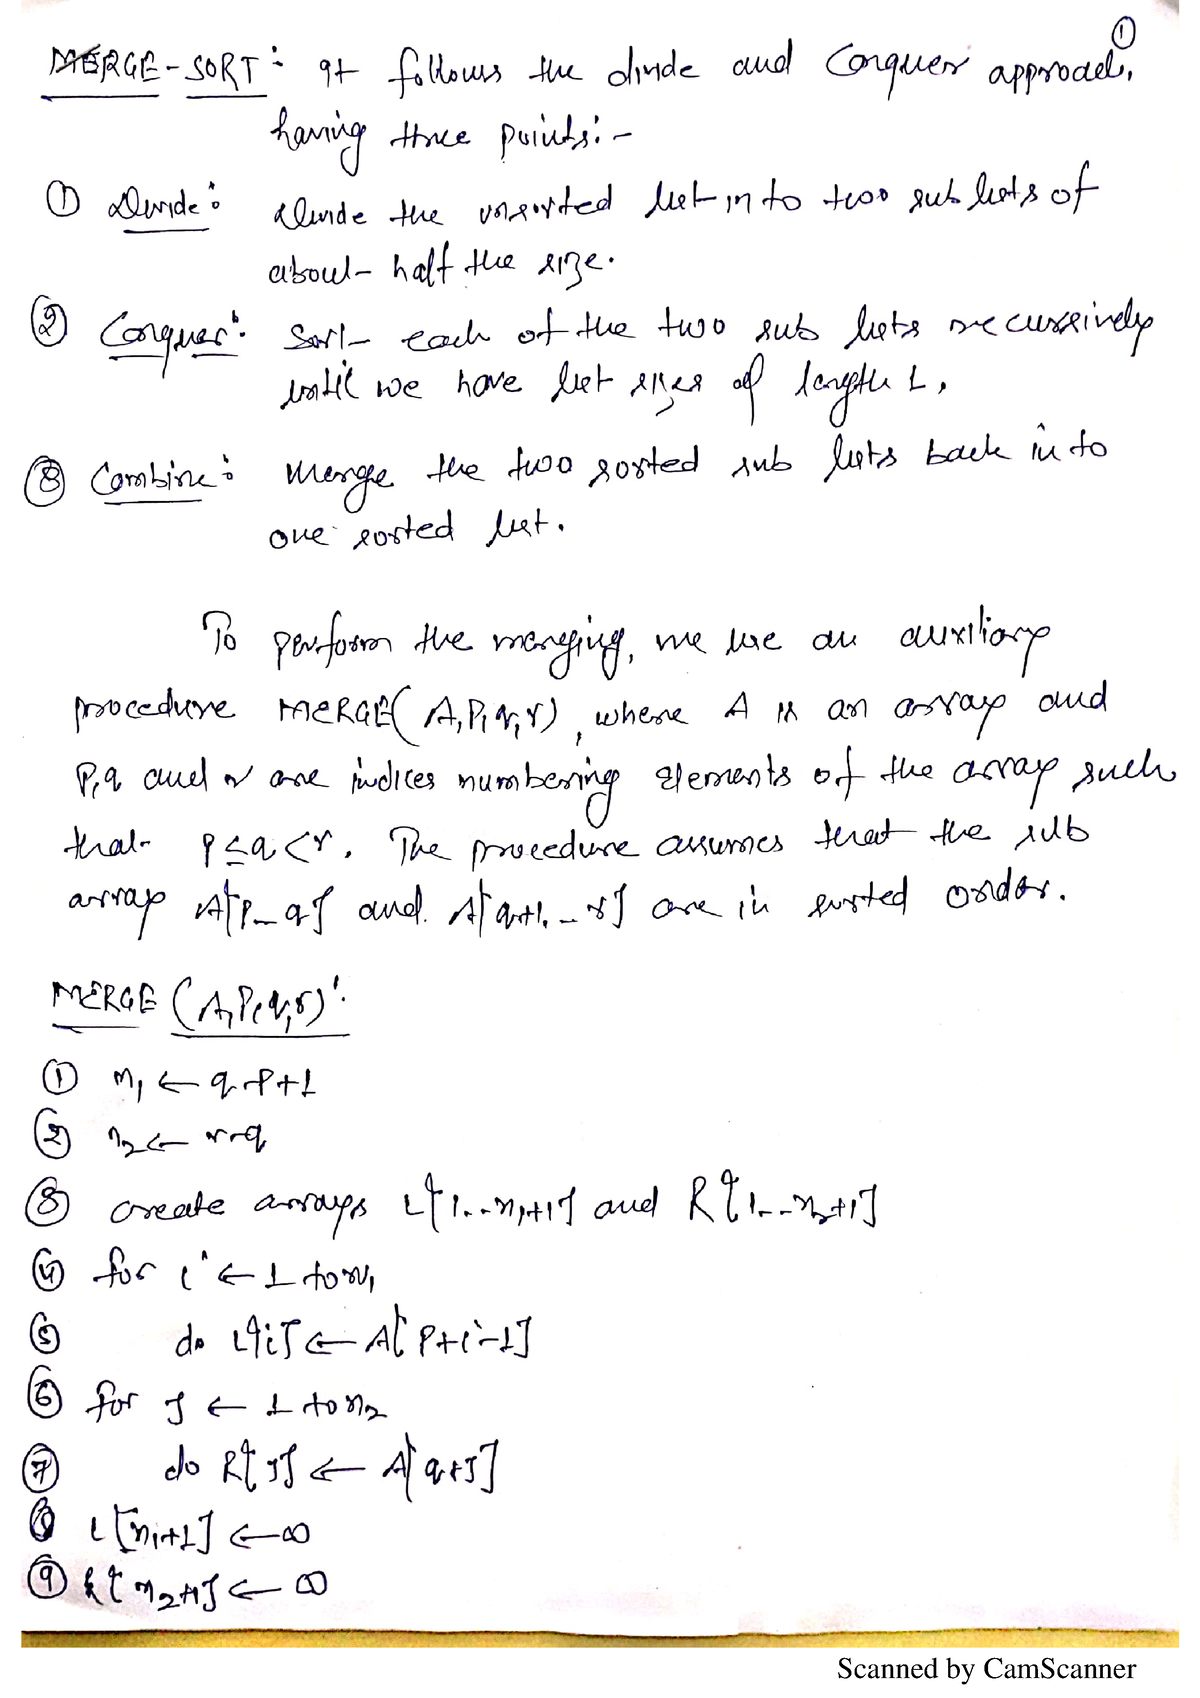 ①
MERGE-SORT: It follows the divide and Conquer approach,
having three points:-
① Divide: Divide the unsorted list in to two sub lists of
about half the size.
② Conquer: Sort each of the two sub lists recursively
until we have list sizes of length 1,
③ Combine: Merge the two sorted sub lists back in to
one sorted list.
To perform the merging, we use an auxiliary
procedure MERGE(A,P,q,r), where A is an array and
P,q and r are indices numbering elements of the array such
that P≤q<r. The procedure assumes that the sub
array A[P_q] and A[q+1,_r] are in sorted order.
MERGE (A,P,q,r):
① n₁ ← q-P+1
② n₂ ← r-q
③ create arrays L[1..n₁+1] and R[1..n₂+1]
④ for i ← 1 to n₁
⑤ do L[i] ← A[P+i-1]
⑥ for J ← 1 to n₂
⑦ do R[J] ← A[q+J]
⑧ L[n₁+1] ← ∞
⑨ R[n₂+1] ← ∞
Scanned by CamScanner